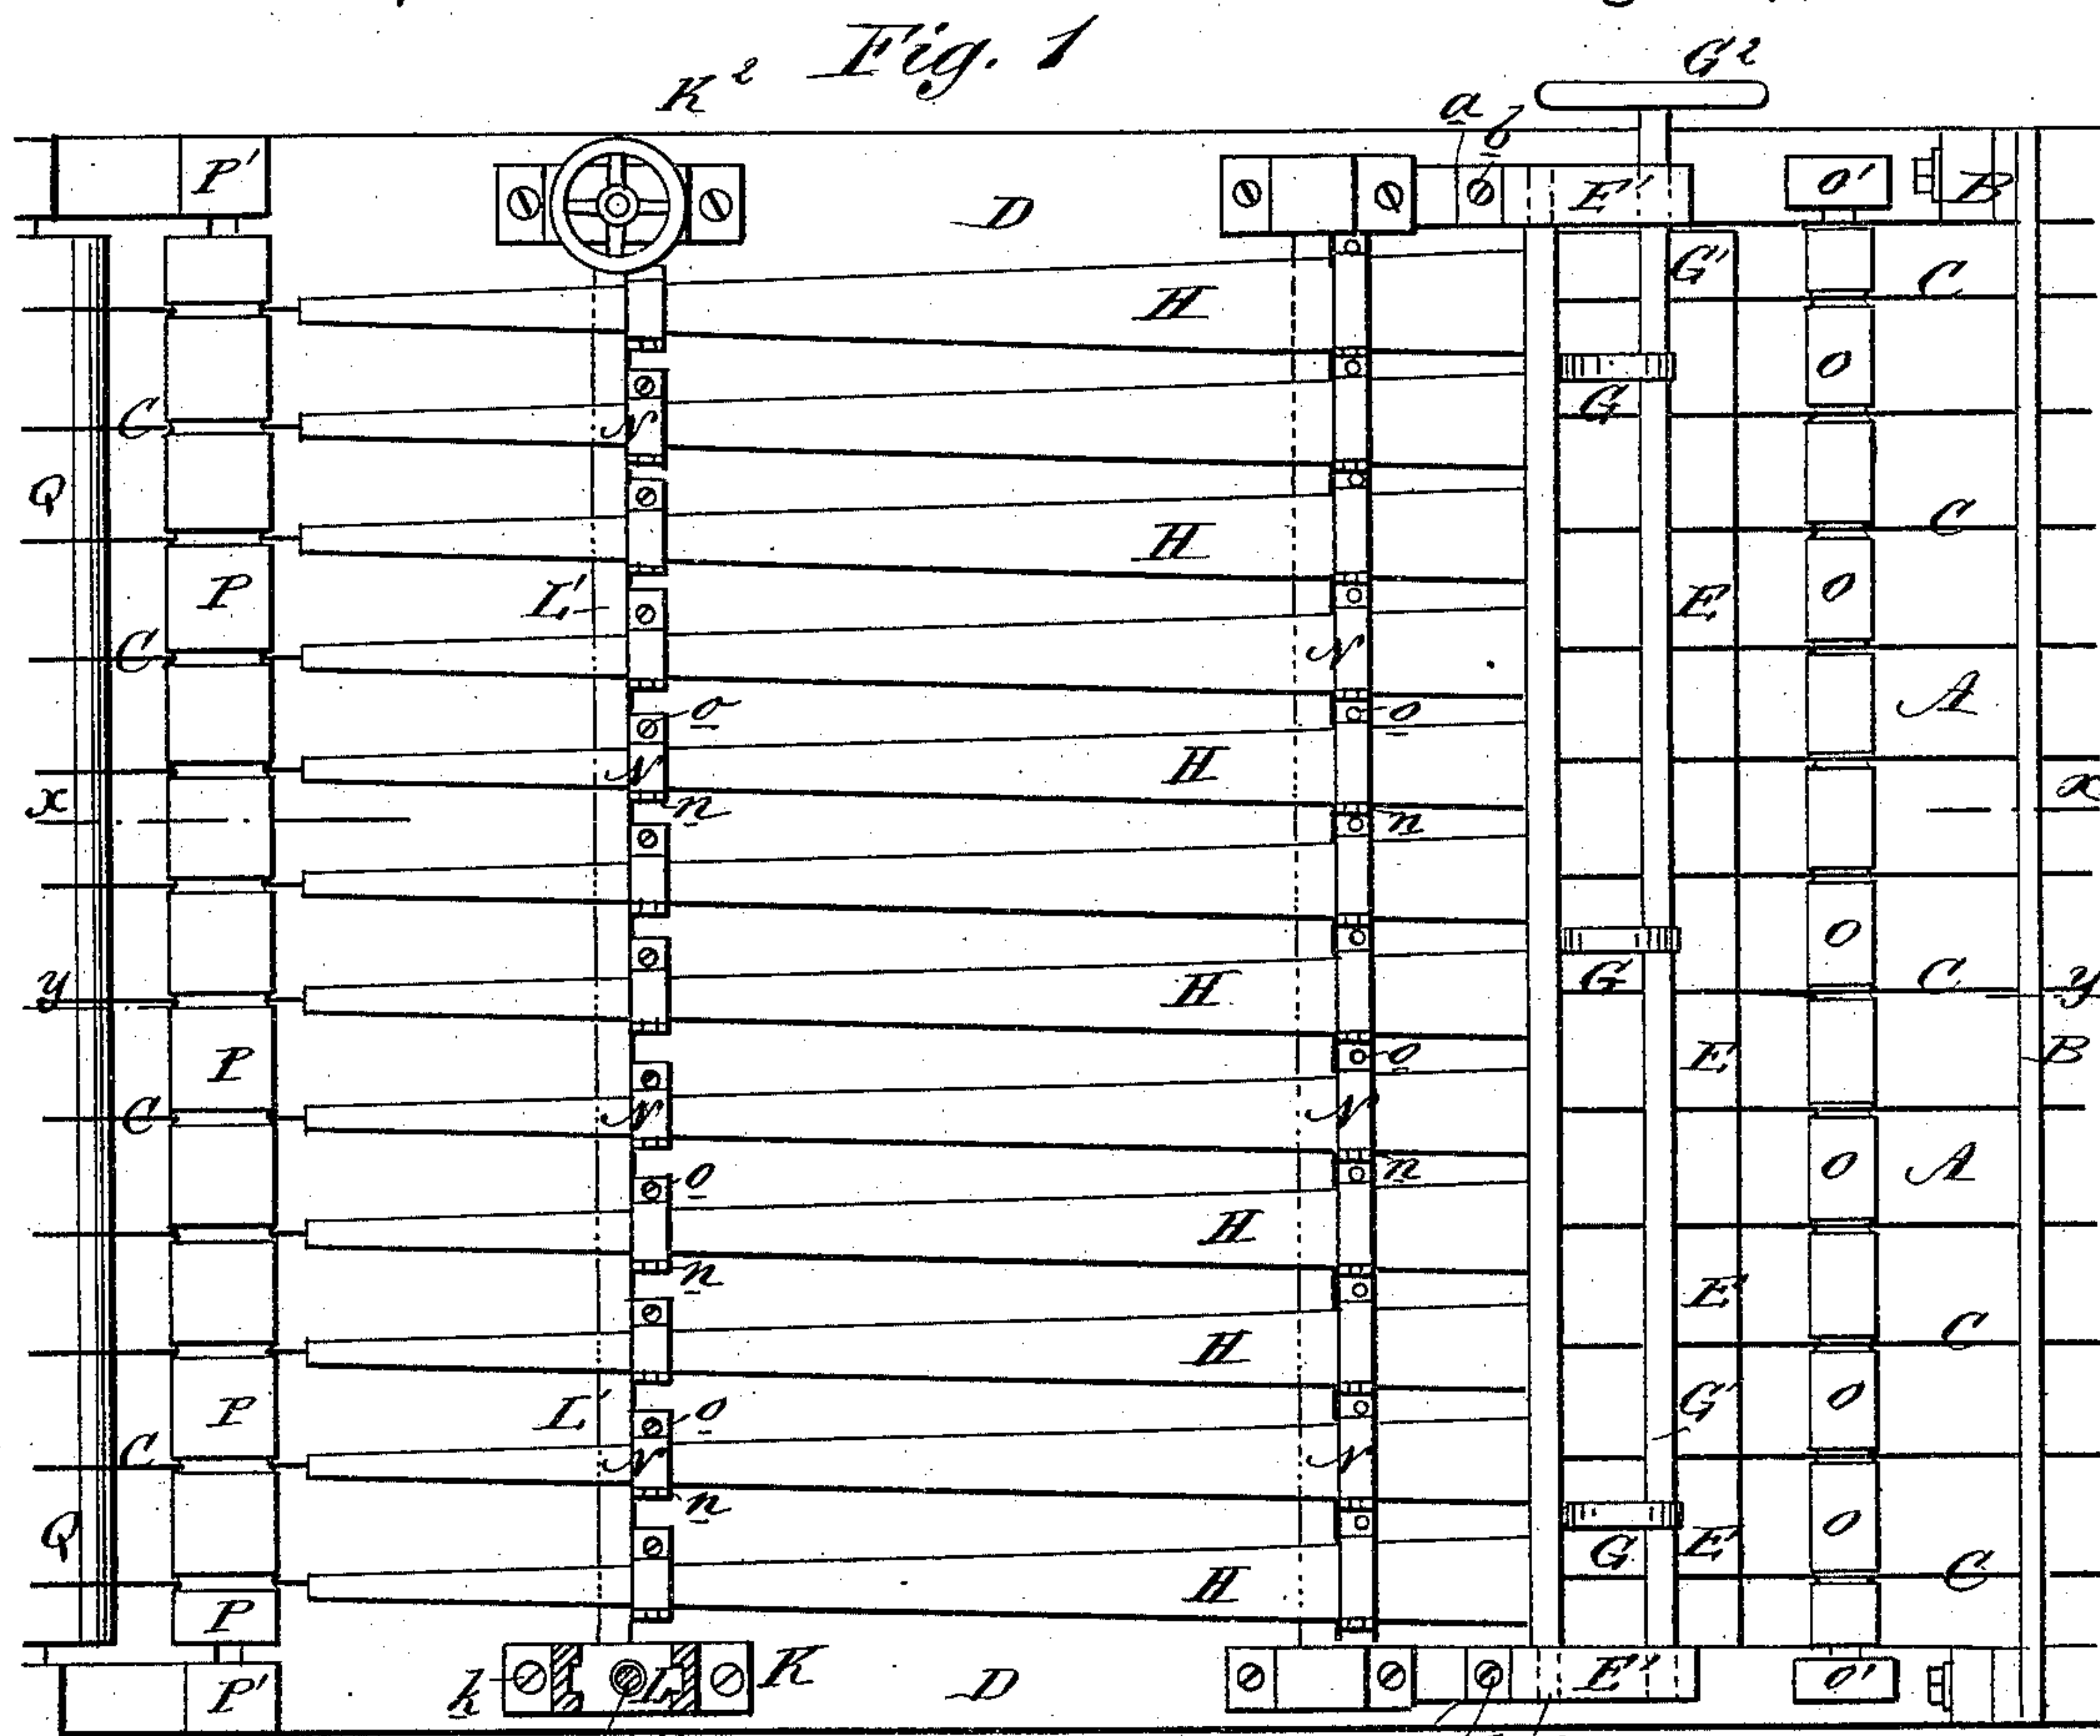 Fig. 1
K² G²
a b
P' D E' O' B
G' C
H
O
C N G
Q
C
H
P L' E O
C N A
o o
H
x N x
n n
O
y H G C y
o B
P E
C N N
O A
o n
H
n E'
C
H
P L' o G' O
C N N
n
Q O
G E'
H C
P
k L K E' O'
P' D